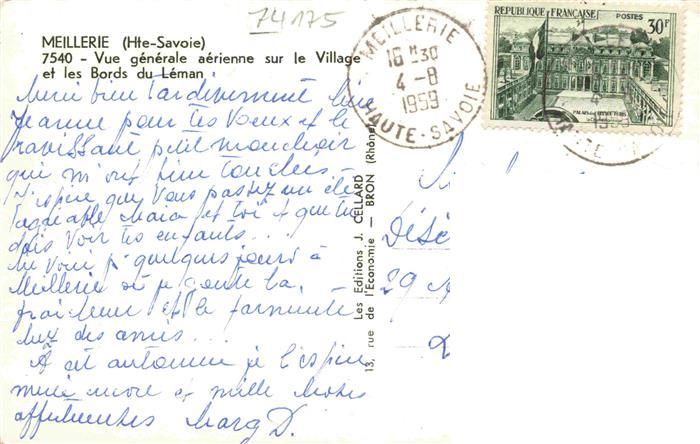 74175
MEILLERIE (Hte-Savoie)
7540 - Vue générale aérienne sur le Village
et les Bords du Léman
MEILLERIE
16 H 30
4 - 8
1959
HAUTE-SAVOIE
RÉPUBLIQUE FRANÇAISE
POSTES
30F
Merci bien tardivement
Jeanne pour tes voeux et le
ravissant petit mouchoir
qui m'ont bien touchée.
J'espère que vous passez un été
agréable Maia et toi et que tu
dois voir tes enfants...
Me voici pr quelques jours à
Meillerie où je goûte la
fraîcheur et le farniente
chez des amis...
À cet automne je l'espère
merci encore et mille
affectueuses Marg D.
Les Editions J. CELLARD
13, rue de l'Economie — BRON (Rhône)
29